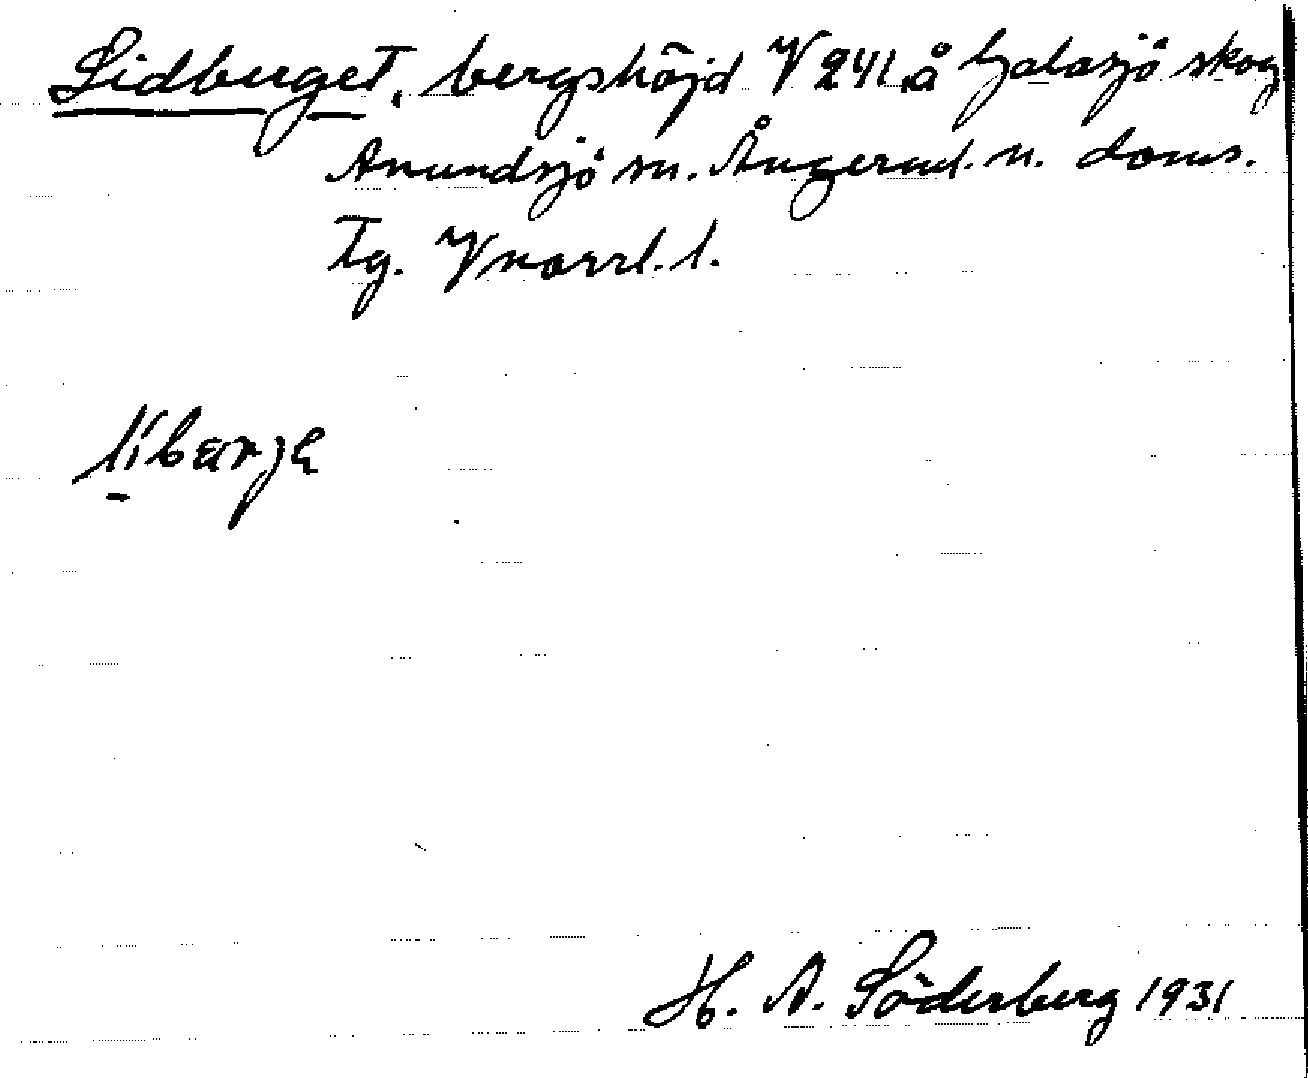 Lidberget, bergshöjd V 241 å Galasjö skog
Anundsjö sn. Ångerml. n. doms.
Tg. Vnorrl. l.
H. A. Söderberg 1931